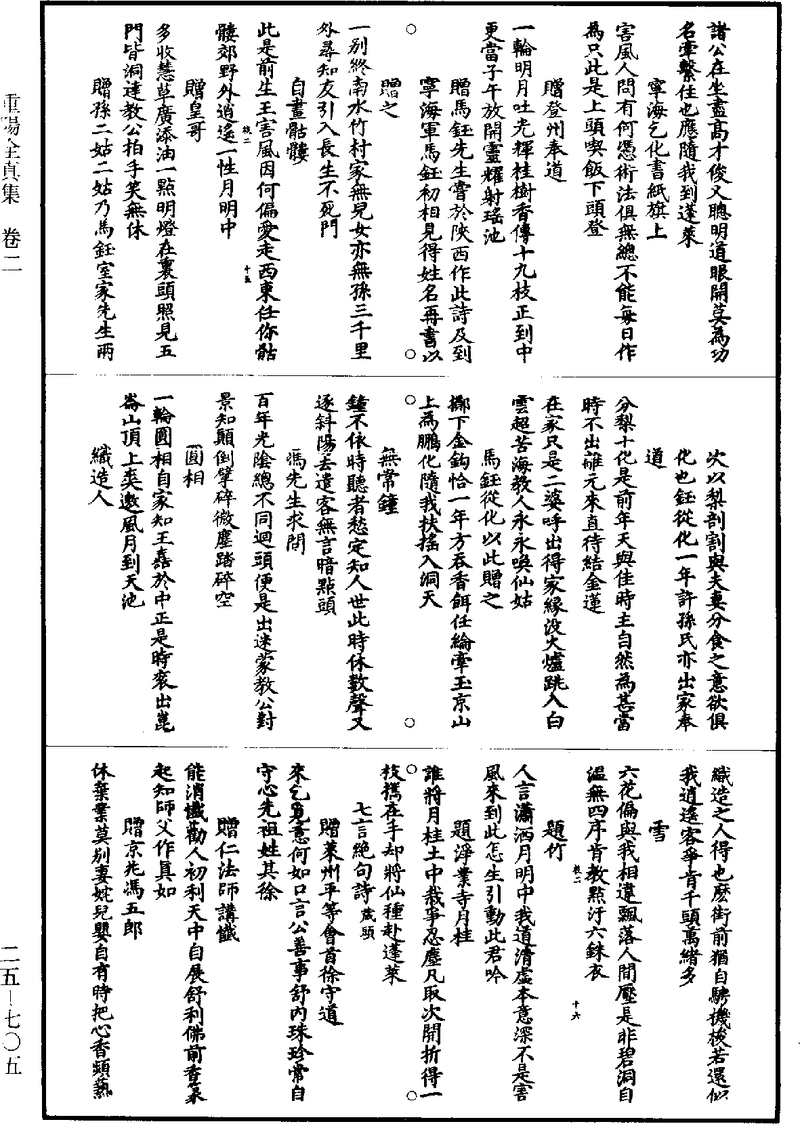 重陽全真集　卷二
諸公在坐盡高才俊又聰明道眼開莫為功
名牽繫住也應隨我到蓬萊
寧海乞化書紙旗上
害風人問有何憑術法俱無總不能每日作
為只此是上頭喫飯下頭登
贈登州奉道
一輪明月吐光輝桂樹香傳十九枝正到中
更當子午放開靈耀射瑤池
贈馬鈺先生嘗於陝西作此詩及到
寧海軍馬鈺初相見得姓名再書以
贈之
一別終南水竹村家無兒女亦無孫三千里
外尋知友引入長生不死門
自畫骷髏
此是前生王害風因何偏愛走西東任你骷
髏郊野外逍遙一性月明中
教二
十五
贈皇哥
多收慧草廣添油一點明燈在裏頭照見五
門皆洞達教公拍手笑無休
贈孫二姑二姑乃馬鈺室家先生兩
次以梨剖割與夫妻分食之意欲俱
化也鈺從化一年許孫氏亦出家奉
道
分梨十化是前年天與佳時主自然為甚當
時不出離元來直待結金蓮
在家只是二婆呼出得家緣沒火爐跳入白
雲超苦海教人永永喚仙姑
馬鈺從化以此贈之
擲下金鈎恰一年方吞香餌任綸牽玉京山
上為鵬化隨我扶搖入洞天
無常鐘
鐘不依時聽者愁定知人世此時休數聲又
逐斜陽去遺客無言暗點頭
馮先生求問
百年光陰總不同迴頭便是出迷蒙教公對
景知顛倒擘碎微塵踏碎空
圓相
一輪圓相自家知王嚞於中正是時衮出崑
崙山頂上爽邀風月到天池
織造人
織造之人得也麼街前猶自騁機梭若還似
我逍遙客爭肯千頭萬緒多
雪
六花偏與我相違飄落人間壓是非碧洞自
溫無四序肯教點汙六銖衣
教二
十六
題竹
人言瀟洒月明中我道清虛本意深不是害
風來到此怎生引動此君吟
題淨業寺月桂
誰將月桂土中栽爭忍塵凡取次開折得一
枝攜在手却將仙種赴蓬萊
七言絕句詩藏頭
贈萊州平等會首徐守道
來乞覓意何如口言公善事舒內珠珍常自
守心先祖姓其徐
贈仁法師講懺
能消懺勸人初利天中自展舒利佛前香篆
起知師父作真如
贈京兆馮五郎
休棄業莫別妻妮兒嬰自有時把心香頭爇
二五—七〇五